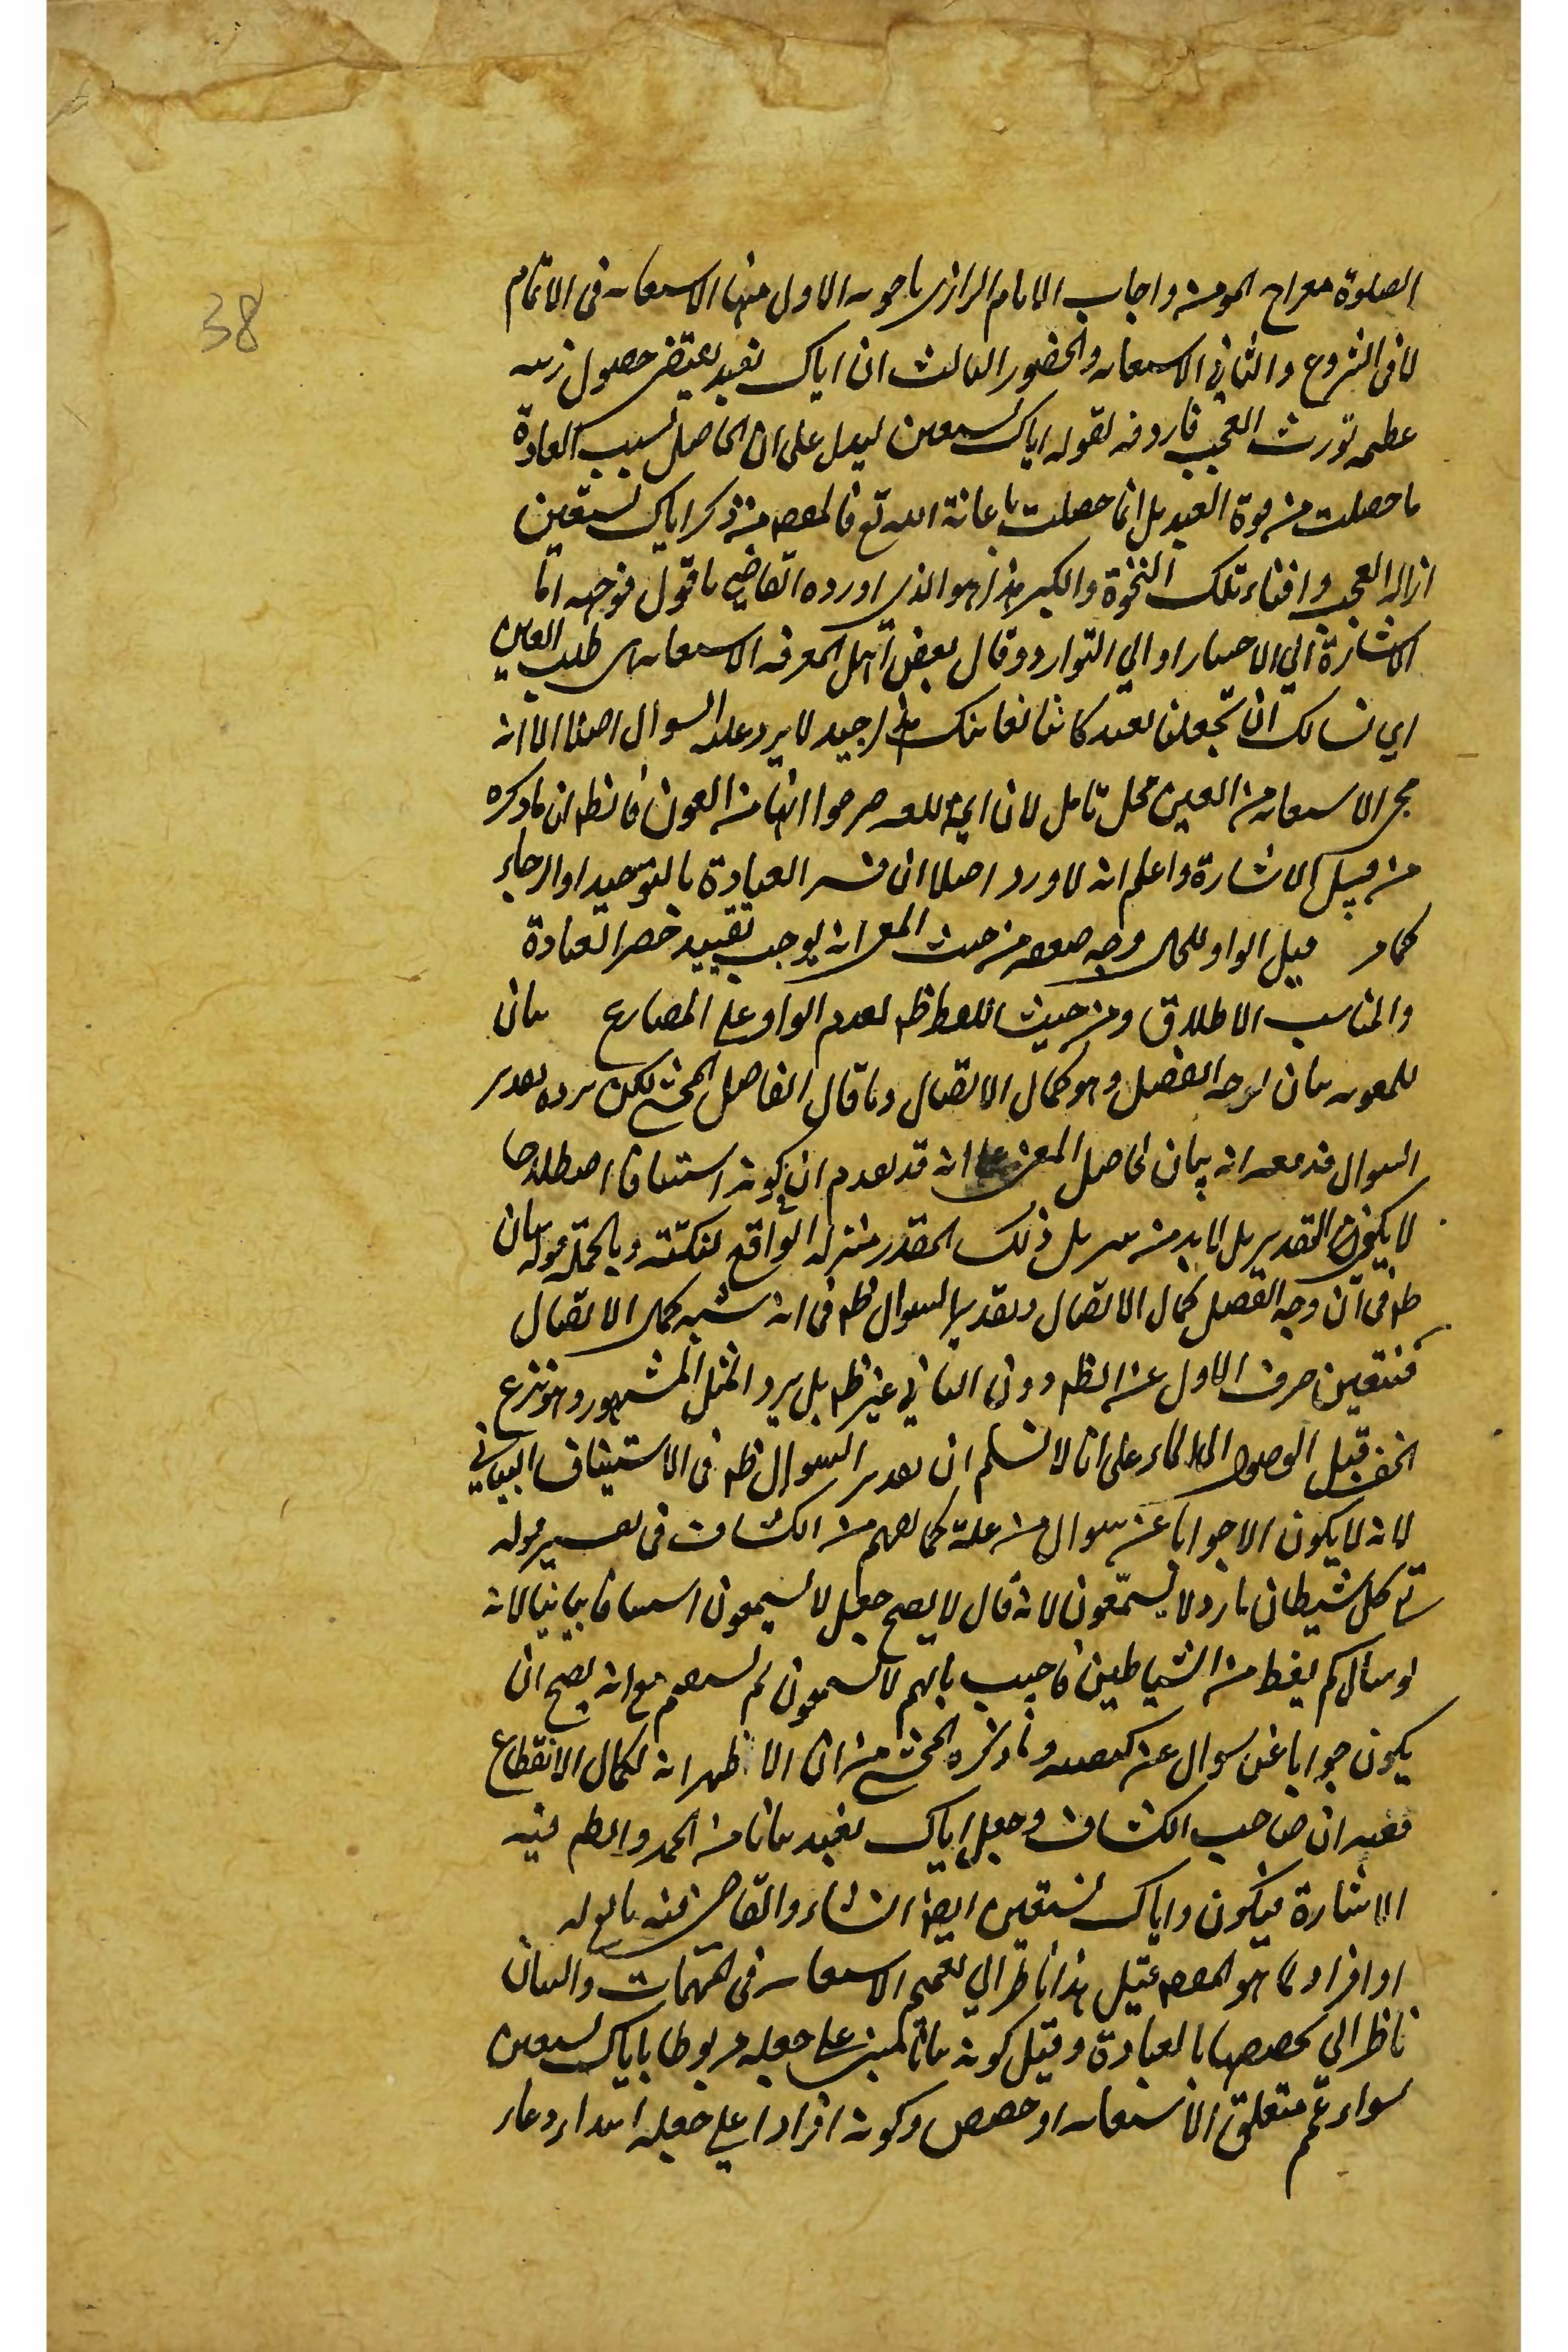 38
الصلوة معراج المومن واجاب الامام الرازي باجوبه الاول منها الاستعانه في الاتمام
لا في الشروع والثاني الاستعانه والحضور الثالث ان اياك نعبد يقتضي حصول رتبه
عظيمه تورث العجب فاردفه بقوله اياك نستعين ليدل على ان الحاصل بسبب العبادة
ما حصلت من قوة العبد بل انما حصلت باعانة الله تع فالمقصد من ذكر اياك نستعين
ازالة العجب وافناء تلك النخوة والكبر هذا هو الذي اورده القاضي باقول فوجهه اما
الاشارة الي الاختيار او الي التوارد وقال بعض اهل المعرفه الاستعانه اي طلب العين
اي نسالك ان تجعلنا نعبد كاننا نعاينك هذا جيد لا يرد عليه السوال اصلا الا انه
مجي الاستعانه من العين محل تامل لان ايمة اللغه صرحوا انها من العون فالظه ان ما ذكره
من قبيل الاشارة واعلم انه لا ورد اصلا ان فسر العبادة بالتوحيد او الرجاء
كما مر قيل الواو للحال وجه ضعفه من حيث المعنى انه يوجب تقييد حصر العبادة
والمناسب الاطلاق ومن حيث اللفظ ظه لعدم الواو على المضارع بيان
للمعونه بيان لوجه الفصل وهو كمال الاتصال وما قال الفاضل المحشي لكن يرده تقدير
السوال فندفعه انه بيان لحاصل المعنى على انه قد تقدم ان كونه استينافا اصطلاحا
لا يكون التقدير بل لابد من تنزيل ذلك المقدر منزلة الواقع لنكتته وبالجمله قوله بيان
ظه في ان وجه الفصل كمال الاتصال وتقدير السوال ظه في انه شبه كمال الاتصال
فتعين صرف الاول عن الظه دون الثاني غير ظه بل يرد المثل المشهور وهو نزع
الخف قبل الوصول الي الماء على انا لا نسلم ان تقدير السوال ظه في الاستيناف البياني
لانه لا يكون الا جوابا عن سوال من علة كما يفهم من الكشاف في تفسير قوله
تع كل شيطان مارد لا يسمعون لانه قال لا يصح جعل لا يسمعون استينافا بيانيا لانه
لو سال لم يحفظ من الشياطين فاجيب بانهم لا يسمعون لم يستقم مع انه يصح ان
يكون جوابا عن سوال عن كيفيته وما ذكره المحشي من ان الاظهر انه لكمال الانقطاع
ففيه ان صاحب الكشاف وجعل اياك نعبد بيانا من الحمد والظه فيه
الاشارة فيكون واياك نستعين ايضا انشاء والقاضي فيه تابع له
او افراد لما هو المقصد قيل هذا ناظر الي تعميم الاستعانه في المهمات والبيان
ناظر الي تخصيصها بالعبادة وقيل كونه بيانا مبني على جعله مربوطا باياك نستعين
سواء عمم متعلق الاستعانه او خصص وكونه افرادا على جعله ابتداء دعاء